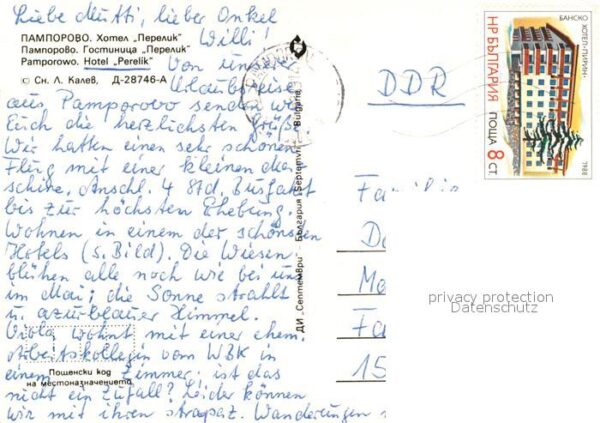 Liebe Mutti, lieber Onkel
Willi!
ПАМПОРОВО. Хотел „Перелик"
Пампорово. Гостиница „Перелик"
Pamporowo. Hotel „Perelik"
© Сн. Л. Калев, Д-28746-А
Von unserer
Urlaubsreise
aus Pamporovo senden wir
Euch die herzlichsten Grüße.
Wir hatten einen sehr schönen
Flug mit einer kleinen Ma-
schine. Anschl. 4 Std. Busfahrt
bis zur höchsten Erhebung.
Wohnen in einem der schönsten
Hotels (s. Bild). Die Wiesen
blühen alle noch wie bei uns
im Mai; die Sonne strahlt
u. azurblauer Himmel.
Viola wohnt mit einer ehem.
Arbeitskollegin vom WBK in
einem Zimmer; ist das
nicht ein Zufall? Leider können
wir mit ihren strapaz. Wanderungen
Пощенски код
на местоназначението
ДИ „Септември" · България Septemvri · Bulgarie
DDR
НР БЪЛГАРИЯ ПОЩА 8 СТ
БАНСКО ХОТЕЛ „ПИРИН"
1988
Familie
Do
Ma
Fa
15
privacy protection
Datenschutz